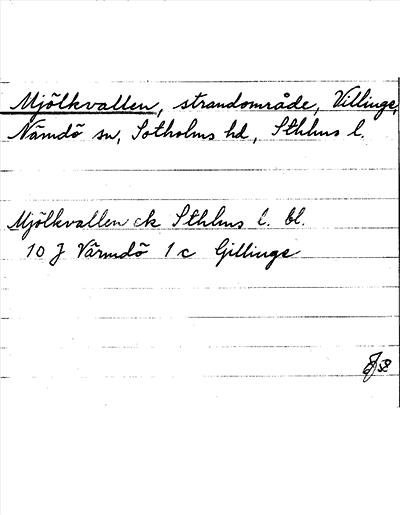 Mjölkvallen, strandområde, Villinge,
Nämdö sn, Sotholms hd, Sthlms l.
Mjölkvallen ek Sthlms l. bl.
10 J Värmdö 1 c Gillinge